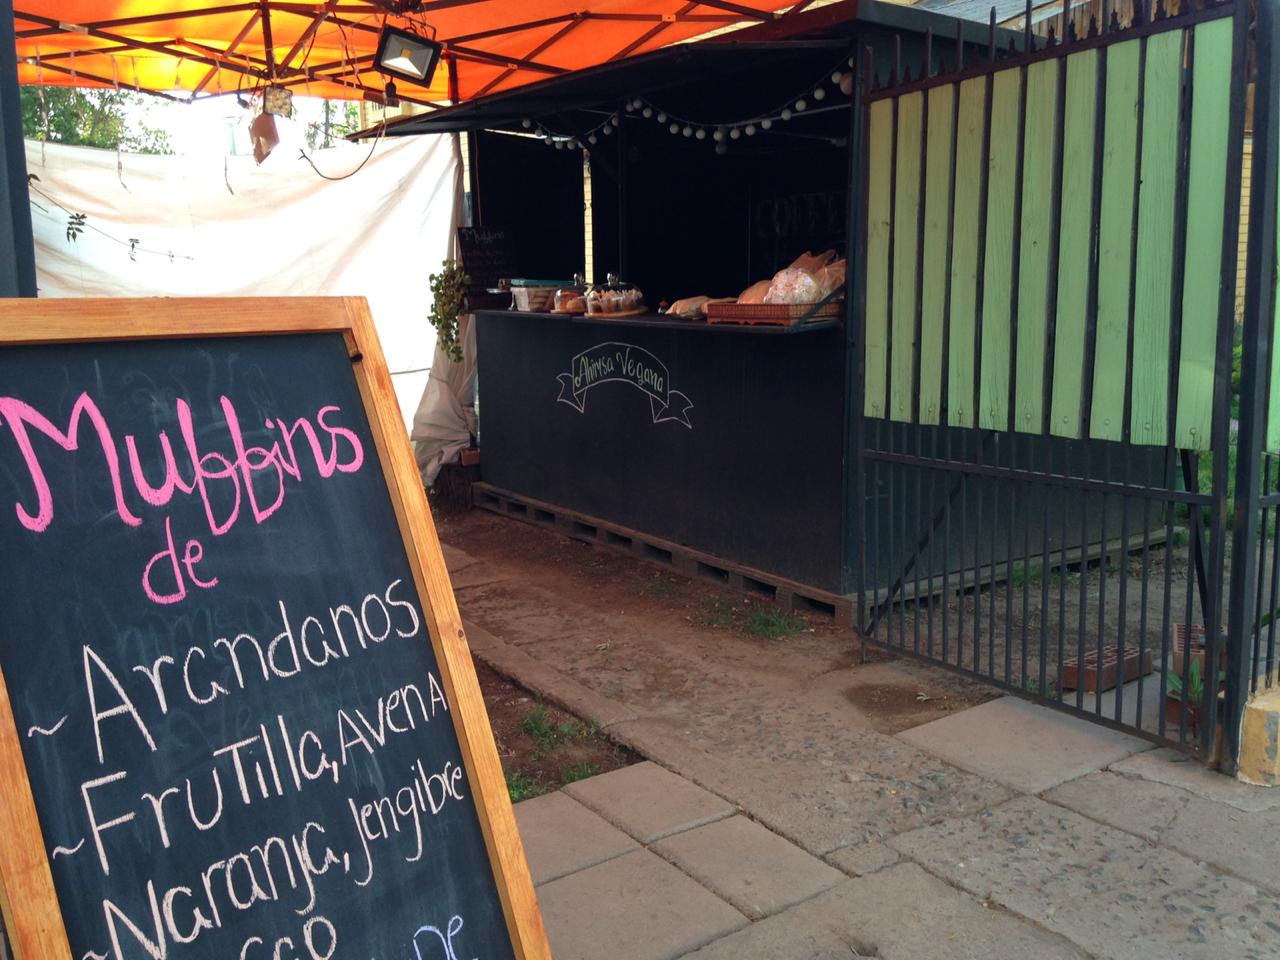 Muffins
de
~ Arandanos
~ Frutilla, Avena
~ Naranja, Jengibre
DE
Ahimsa Vegana
Muffins
COFFE